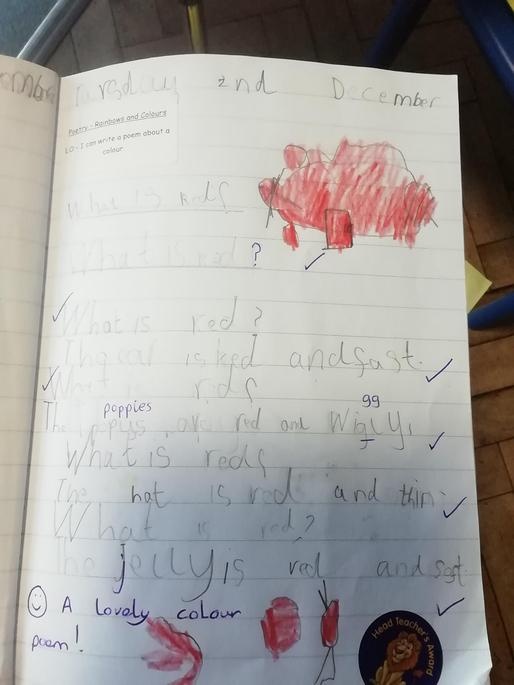 ember
Tursday 2nd December
Poetry - Rainbows and Colours
LO - I can write a poem about a
colour
What is red?
What is red?
What is red?
The car is red and fast.
What is red?
poppies gg
The popys are red and Wigly.
What is red?
The hat is red and thin.
What is red?
The jelly is red and soft.
A lovely colour
poem!
Head Teacher's Award